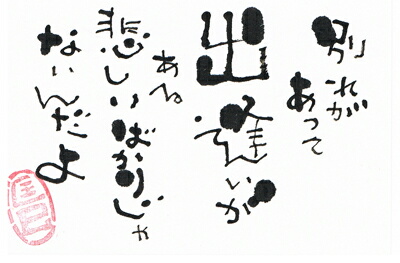 別れが
あって
出逢いが
あね
悲しいばかりじゃ
ないんだよ